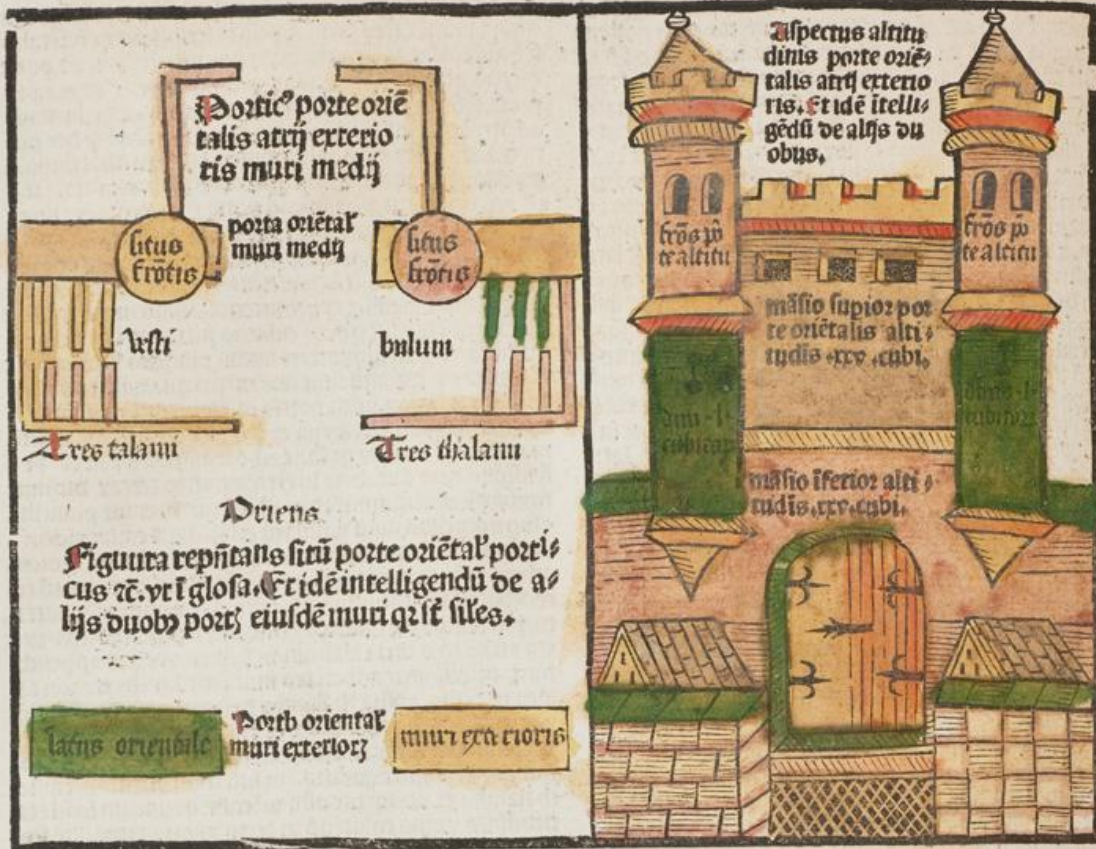 Portic⁹ porte oriē
talis atrij exterio
ris muri medij
porta oriētal̃
muri medij
situs
frōtis
situs
frōtis
Vesti
bulum
Tres talami
Tres thalami
Oriens
Figuura rep̃ntans sitū porte oriētal̃ porti⸗
cus ⁊c̄. vt ī glosa. Et idē intelligendū de a⸗
lijs duobꝫ portꝫ eiusdē muri qꝛ sīt siles.
latus orientale
Porta oriental̃
muri exteriorꝫ
muri exterioris
Aspectus altitu
dinis porte oriē⸗
talis atrij exterio
ris. Et idē ītelli⸗
gēdū de alijs du
obus.
frōs por
te altitu
frōs por
te altitu
māsio supior por
te oriētalis alti⸗
tudīs .xxv .cubi.
dinis .l.
cubitorum
māsio īferior alti⸗
tudīs .xxv. cubi.